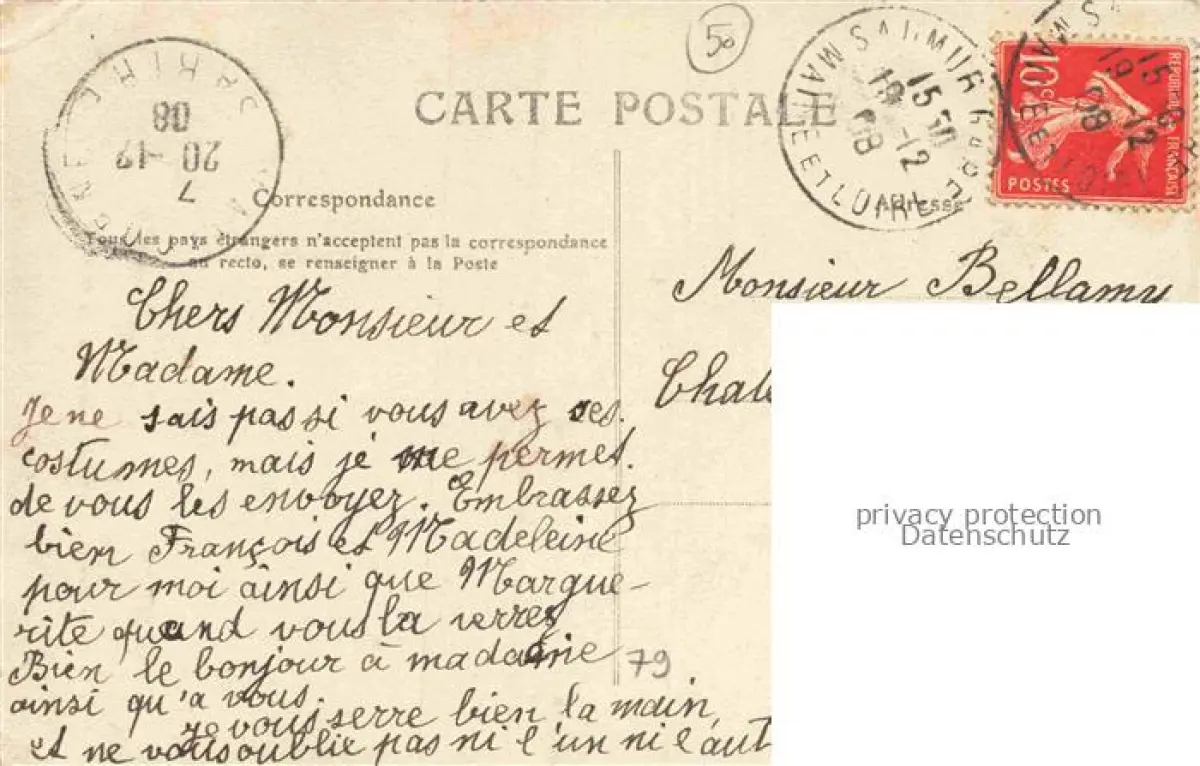 50
CARTE POSTALE
SARTHE
7
20 -12
08
SAUMUR GARE
15 50
19 -12
08
MAINE ET LOIRE
REPUBLIQUE FRANÇAISE
10c
POSTES
Correspondance
Tous les pays étrangers n'acceptent pas la correspondance
au recto, se renseigner à la Poste
Chers Monsieur et
Madame.
Je ne sais pas si vous avez ces
costumes, mais je me permet
de vous les envoyez. Embrassez
bien François et Madeleine
pour moi ainsi que Margue-
rite quand vous la verrez
Bien le bonjour à madame
ainsi qu'a vous.
Je vous serre bien la main,
et ne vous oublie pas ni l'un ni l'aut
79
Adresse
Monsieur Bellamy
privacy protection
Datenschutz